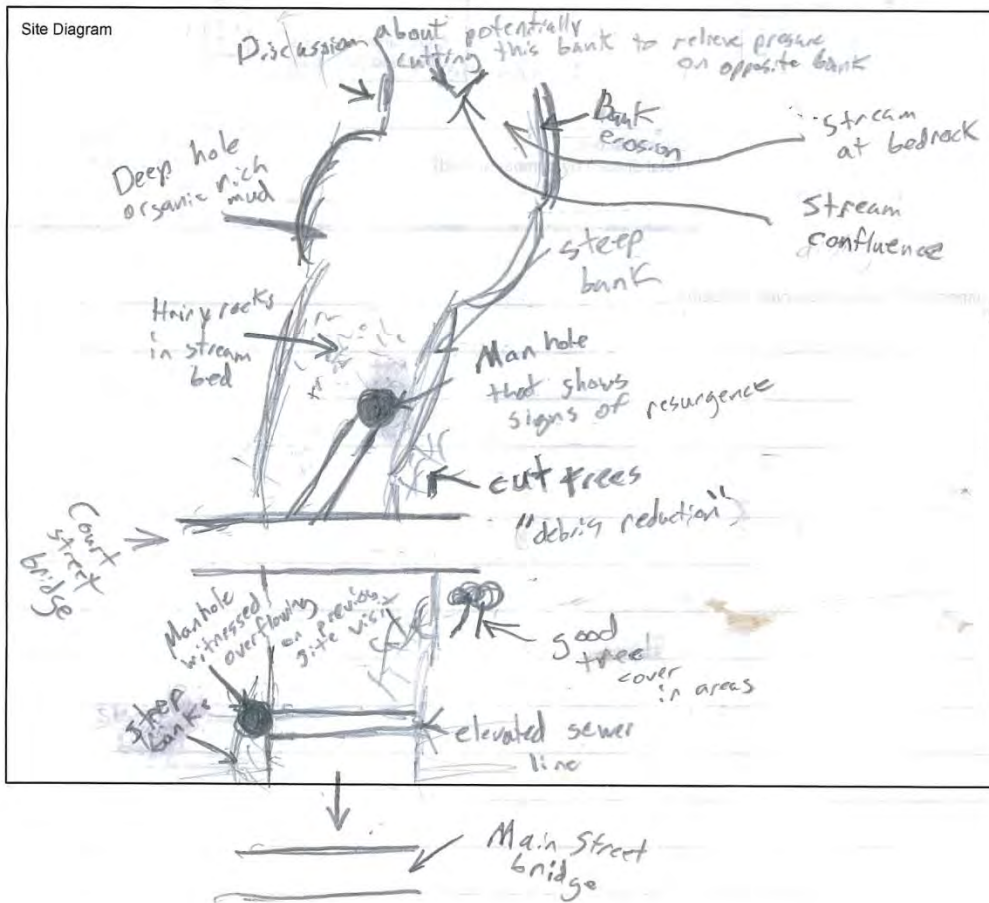 Site Diagram
Discussion about potentially
cutting this bank to relieve presure
on opposite bank
Bank
erosion
stream
at bedrock
Deep hole
organic rich
mud
stream
confluence
steep
bank
Hairy rocks
in stream
bed
Manhole
that shows
signs of resurgence
cut trees
"debris reduction"
Court
street
bridge
Manhole
witnessed
overflowing
on previous
site visit
good
tree
cover
in areas
steep
banks
elevated sewer
line
Main Street
bridge